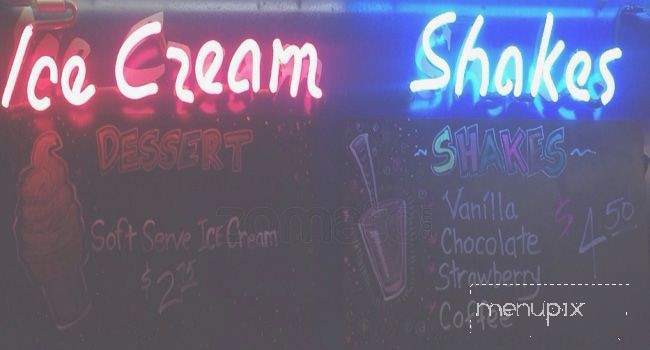 Ice Cream
Shakes
DESSERT
Soft Serve Ice Cream
~SHAKES~
Vanilla
Chocolate
Strawberry
Coffee
$4.50
menupix